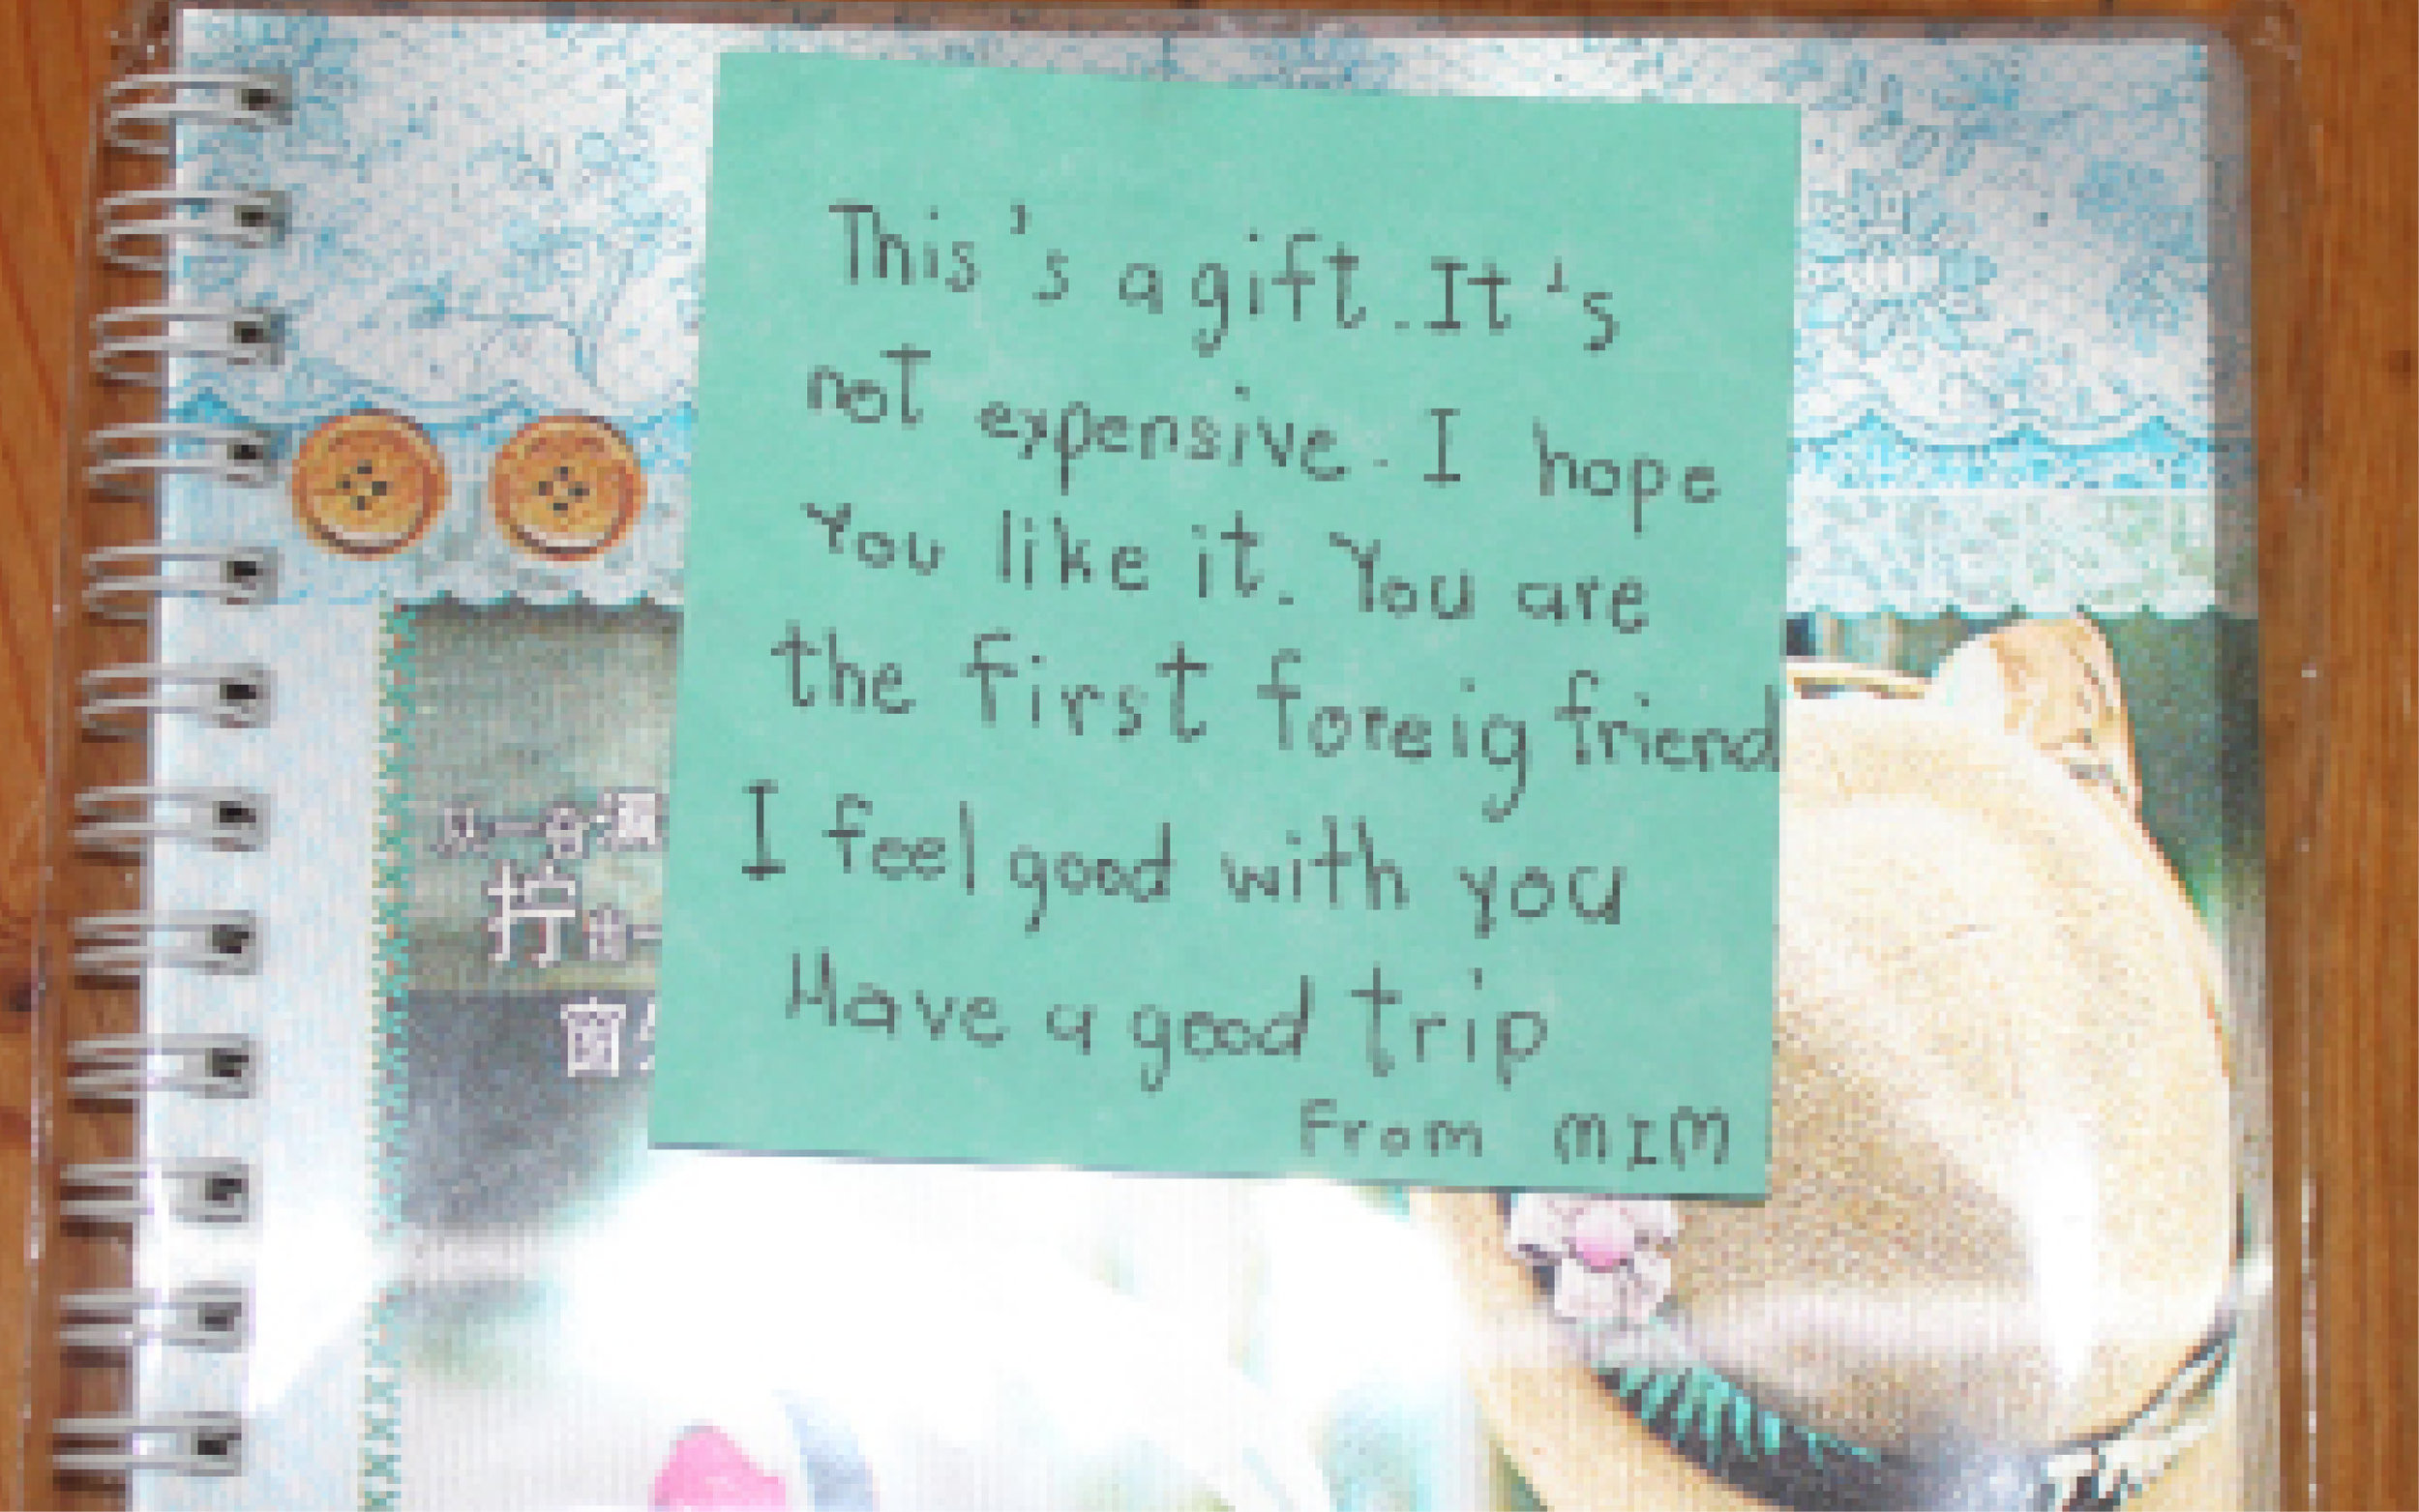 This's a gift. It's
not expensive. I hope
You like it. You are
the first foreig friend
I feel good with you
Have a good trip
From MIM
拧
窗